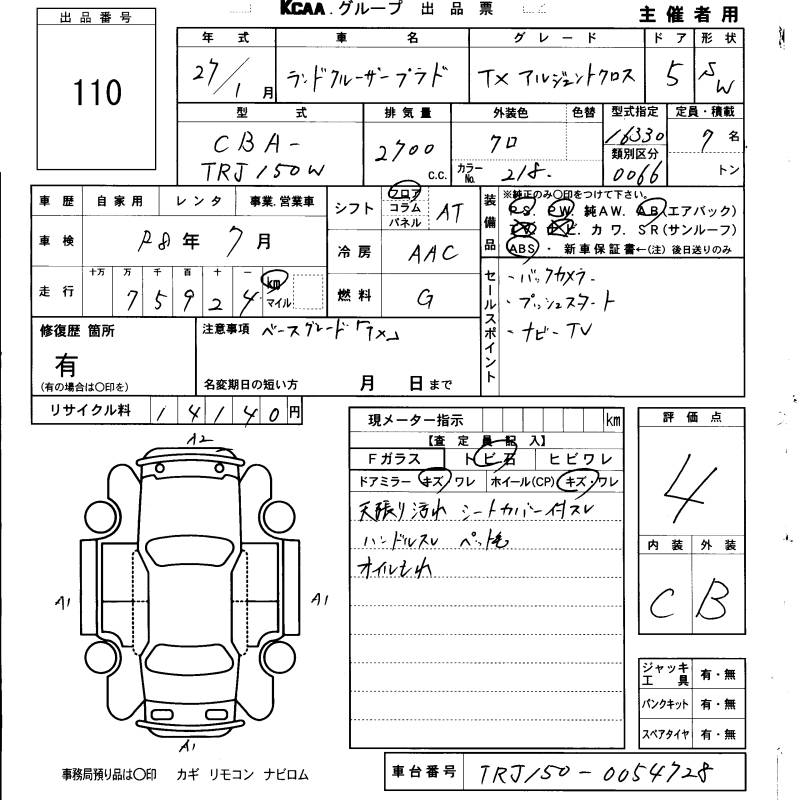 KCAA.グループ 出品票
主催者用
出品番号
110
年式 車名 グレード ドア 形状
27/1月 ランドクルーザープラド TX アルジェントクロス 5 SW
型式 排気量 外装色 色替 型式指定 定員・積載
CBA-
TRJ150W
2700 c.c.
クロ
カラーNo. 218.
16330
類別区分
0066
7名
トン
車歴 自家用 レンタ 事業.営業車
車検 R8年 7月
走行 十万 万 千 百 十 一
7 5 9 2 4 km
マイル
シフト フロア コラム パネル AT
冷房 AAC
燃料 G
装備品
※純正のみ〇印をつけて下さい。
PS. PW. 純AW. AB(エアバック)
カワ. SR(サンルーフ)
ABS・ 新車保証書←(注)後日送りのみ
セールスポイント
・バックカメラ
・プッシュスタート
・ナビーTV
修復歴 箇所
有
(有の場合は〇印を)
注意事項 ベースグレード「TX」
名変期日の短い方 月 日まで
リサイクル料 14140円
現メーター指示 km
【査定員記入】
Fガラス トビ石 ヒビワレ
ドアミラー キズ・ワレ ホイール(CP) キズ・ワレ
天張り汚れ シートカバー付スレ
ハンドルスレ ペット毛
オイルもれ
評価点
4
内装 外装
C B
A2
A1
A1
A1
ジャッキ工具 有・無
パンクキット 有・無
スペアタイヤ 有・無
事務局預り品は〇印 カギ リモコン ナビロム
車台番号 TRJ150-0054728